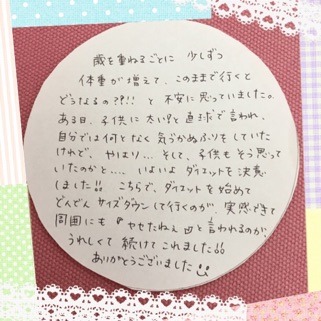 歳を重ねるごとに 少しずつ
体重が増えて、このままで行くと
どうなるの??!! と 不安に思っていました。
ある日、子供に 太い!と 直球で言われ、
自分では何となく気づかぬふりをしていた
けれど、やはり… そして、子供も そう思って
いたのかと…. いよいよ ダイエットを決意
しました!! こちらで、ダイエットを始めて
どんどん サイズダウンして行くのが、実感できて
周囲にも 『ヤセたねぇ』と言われるのが
うれしくて 続けてこれました!!
ありがとうございました